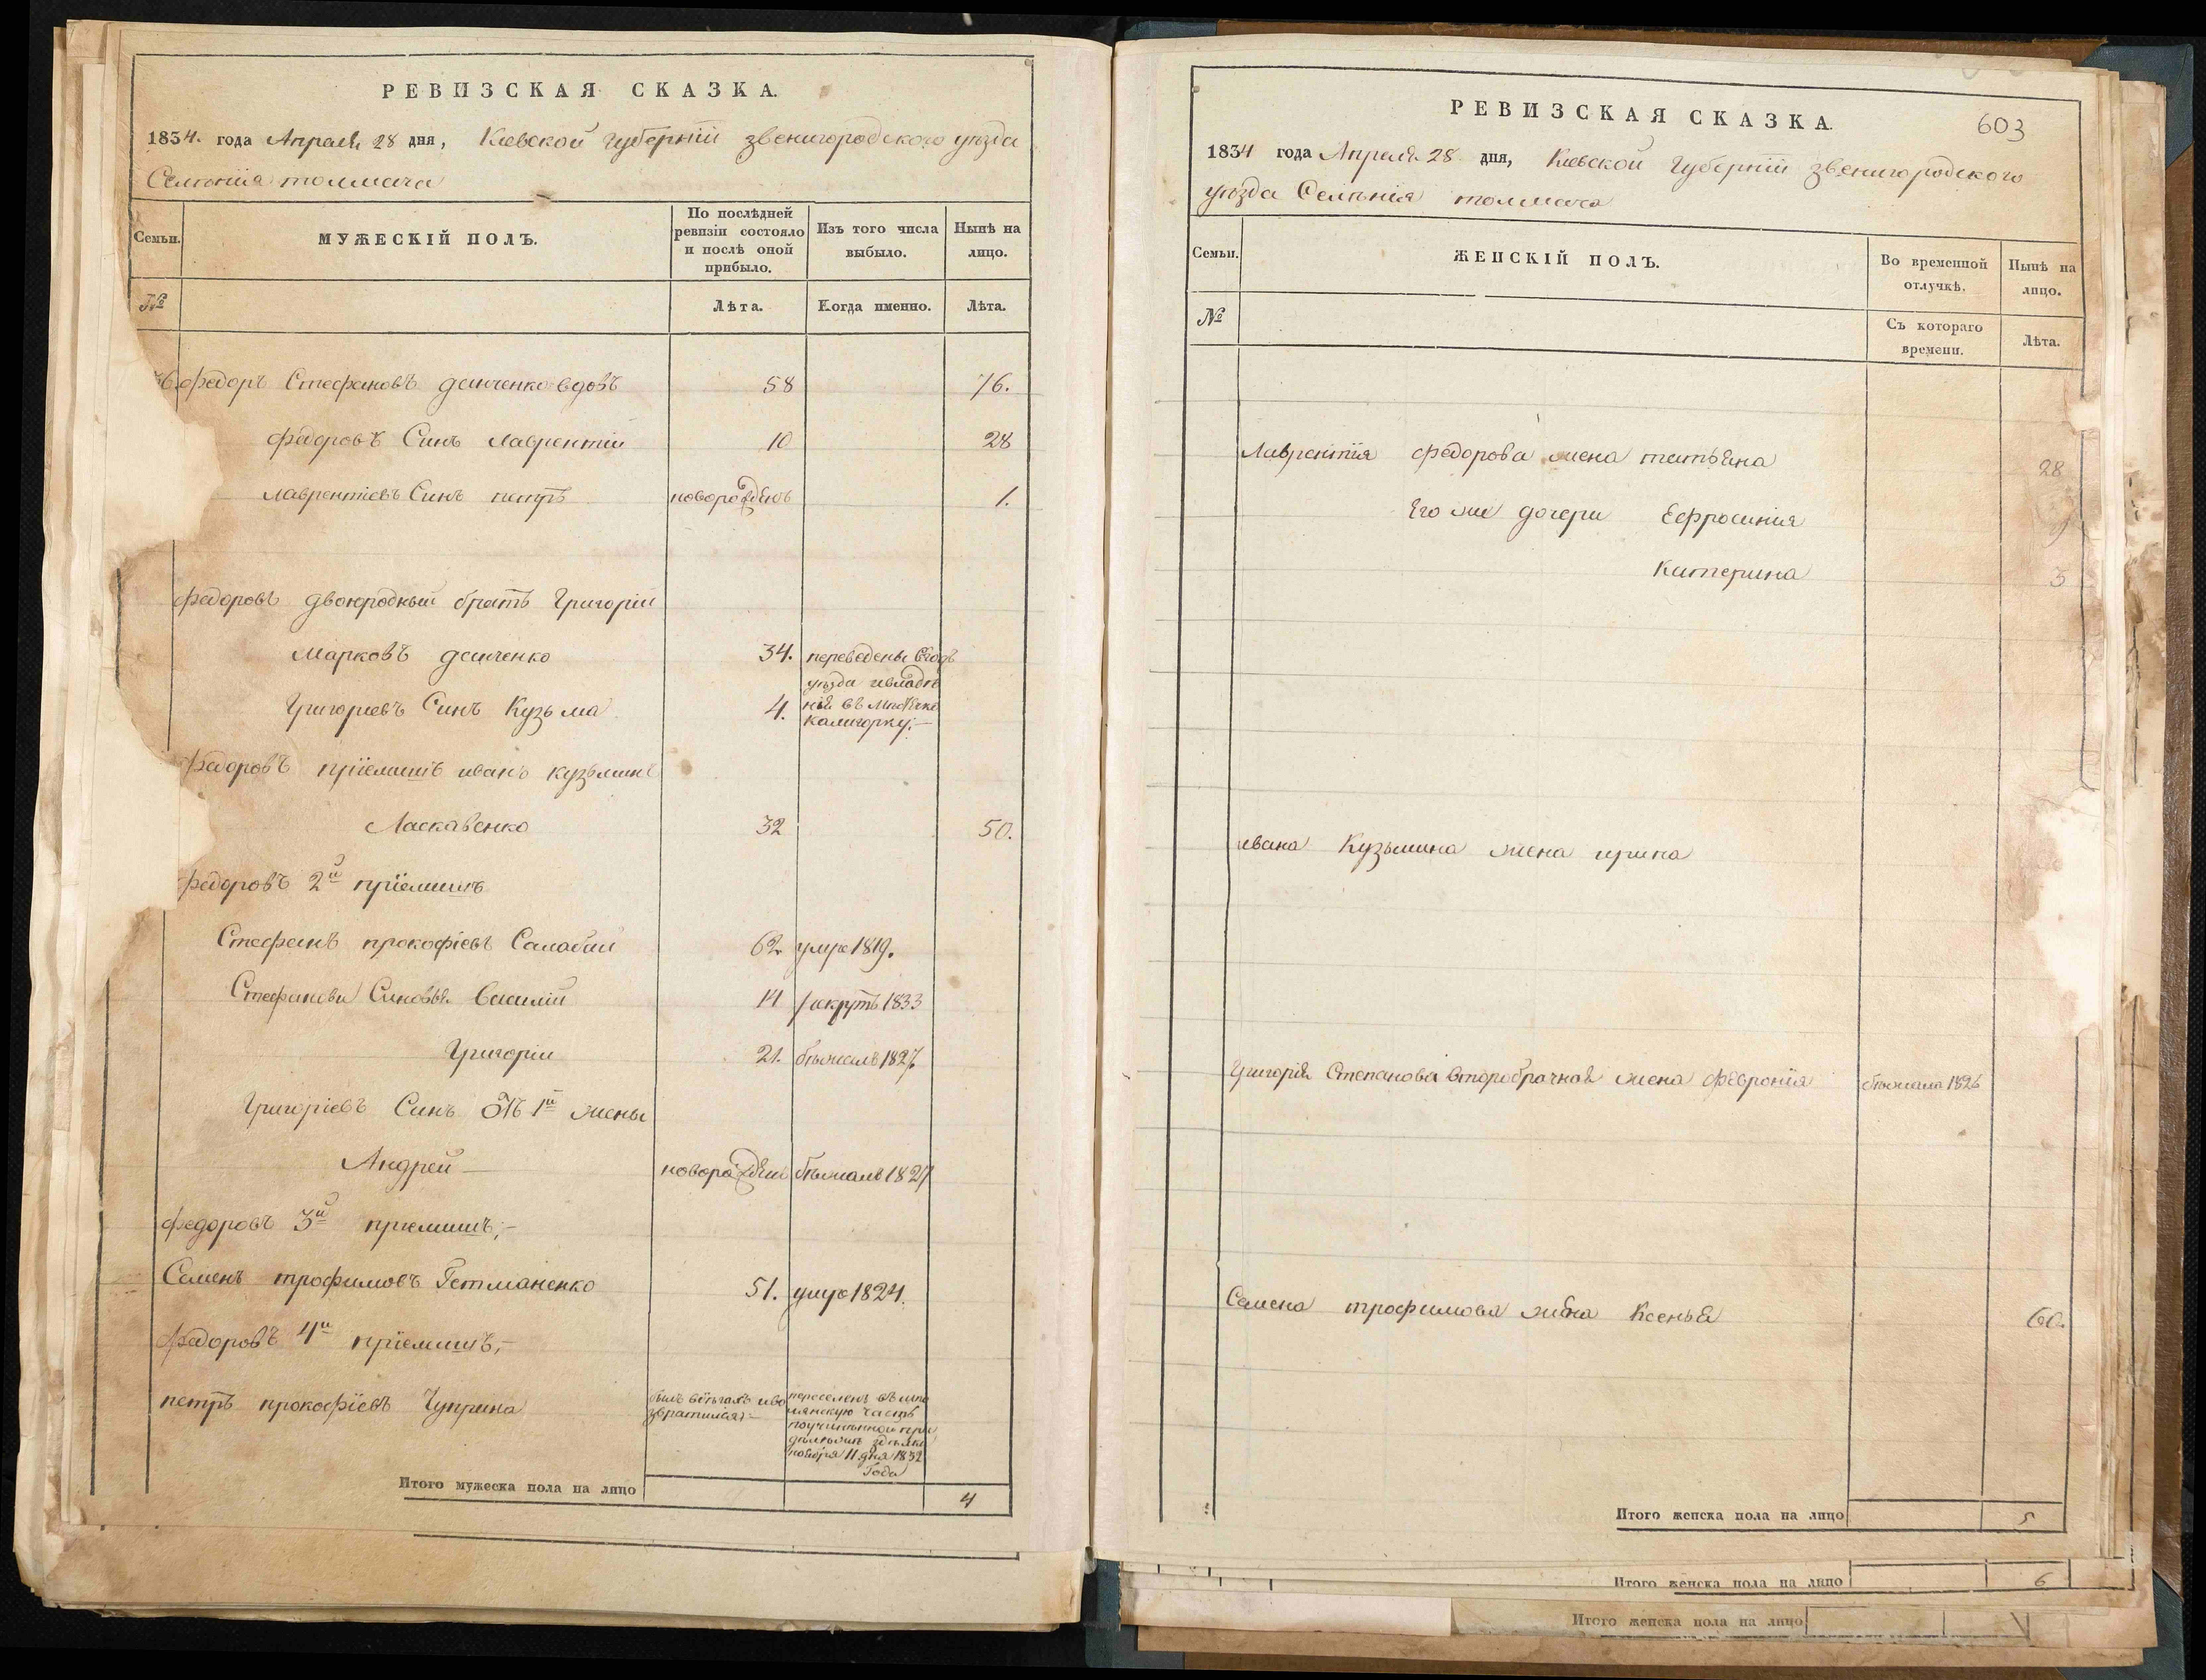 РЕВИЗСКАЯ СКАЗКА.
1834. года Апреля 28 дня, Киевской Губернїи звенигородского уѣзда
Селѣнїя толмача
Семьи.
МУЖЕСКІЙ ПОЛЪ.
По послѣдней ревизіи состояло и послѣ оной прибыло.
Изъ того числа выбыло.
Нынѣ на лицо.
№
Лѣта.
Когда именно.
Лѣта.
федоръ Стефановъ вдовъ 58 76.
федоровъ Синъ лаврентїй 10 28
лаврентіевъ Синъ петръ новорожденъ 1.
федоровъ двоюродный братъ Григорій
Марковъ 34. переведены
уѣзда
Григориевъ Синъ Кузьма 4.
калигорку;—
федоровъ прїемишъ иванъ кузьминъ
Ласкавенко 32 50.
федоровъ 2й прїемишъ
Стефанъ прокофіевъ Салабай 62 умре 1819.
Стефанови Синовья Василій 14 рекрутъ 1833
Григорій 21. бѣжалъ 1827
Григоріевъ Синъ отъ 1й жены
Андрей — новорожденъ бѣжалъ 1827
федоровъ 3й приемишъ;—
Семенъ трофимовъ Гетманенко 51. умре 1824.
федоровъ 4й прїемишъ,—
петръ прокофїевъ Чуприна
переселенъ
часть
ноября 11 дня 1832
Года
Итого мужеска пола на лицо 4
РЕВИЗСКАЯ СКАЗКА.
603
1834 года Апреля 28 дня, Киевской Губернїи звенигородского
уѣзда Селѣнія толмача
Семьи.
ЖЕНСКІЙ ПОЛЪ.
Во временной отлучкѣ.
Нынѣ на лицо.
№
Съ котораго времени.
Лѣта.
Лаврентїя федорова жена татьяна 28
Его же дочери Ефросинія 9
Катерина 3
ивана Кузьмина жена ирина
Григорія Степанова второбрачная жена феврония бѣжала 1826
Семена трофимова жена Ксенья 60.
Итого женска пола на лицо 5
Итого женска пола на лицо 6
Итого женска пола на лицо